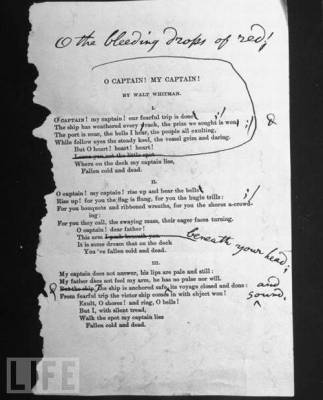 O the bleeding drops of red!
O CAPTAIN! MY CAPTAIN!
BY WALT WHITMAN.
I.
O CAPTAIN! my captain! our fearful trip is done
The ship has weathered every rack, the prize we sought is won
The port is near, the bells I hear, the people all exulting,
While follow eyes the steady keel, the vessel grim and daring.
But O heart! heart! heart!
Leave you not the little spot
Where on the deck my captain lies,
Fallen cold and dead.
II.
O captain! my captain! rise up and hear the bells
Rise up! for you the flag is flung, for you the bugle trills:
For you bouquets and ribboned wreaths, for you the shores a-crowd-
ing:
For you they call, the swaying mass, their eager faces turning.
O captain! dear father!
This arm I push beneath you
beneath your head;
It is some dream that on the deck
You've fallen cold and dead.
III.
My captain does not answer, his lips are pale and still:
My father does not feel my arm, he has no pulse nor will.
But the ship, the ship is anchored safe, its voyage closed and done:
and sound.
From fearful trip the victor ship comes in with object won!
Exult, O shores! and ring, O bells!
But I, with silent tread,
Walk the spot my captain lies
Fallen cold and dead.
LIFE